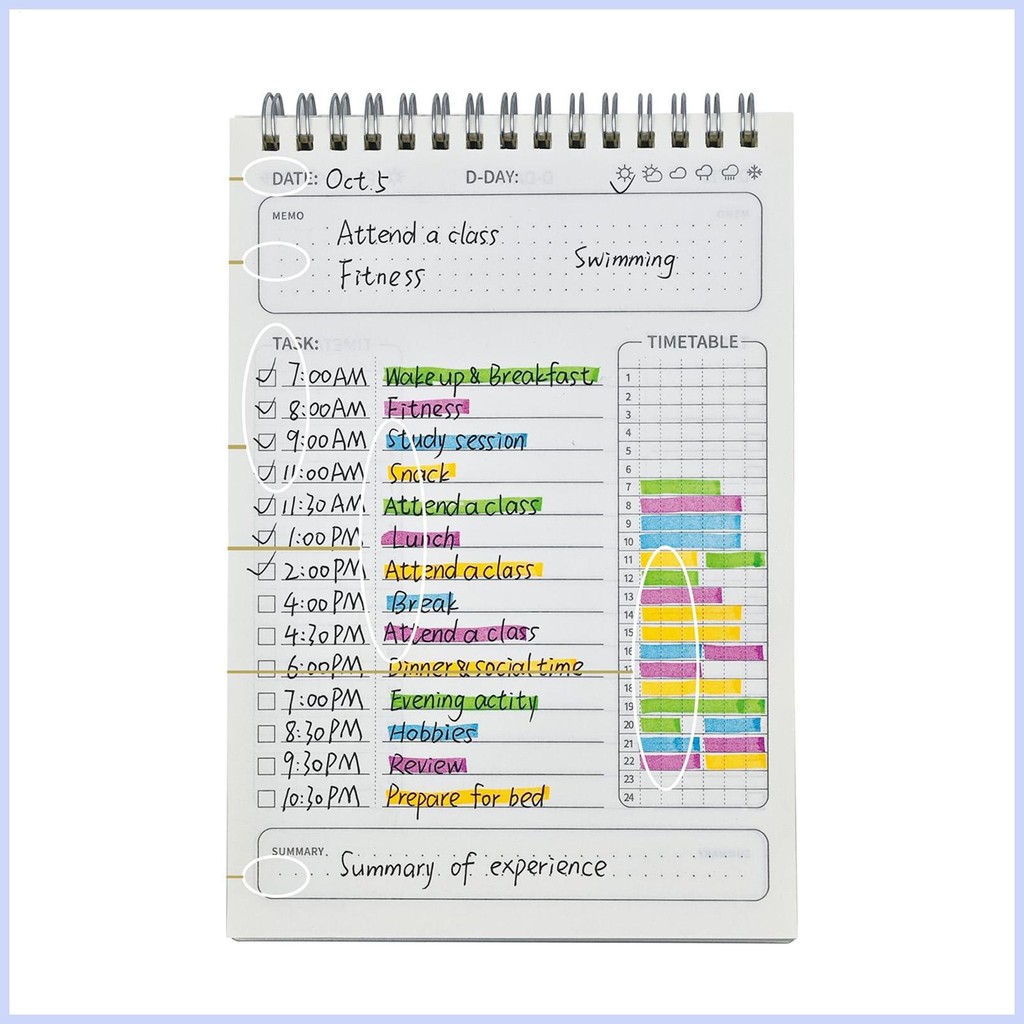 DATE: Oct.5 D-DAY:
MEMO
Attend a class
Swimming
Fitness
TASK:
7:00AM Wake up & Breakfast
8:00AM Fitness
9:00AM Study session
11:00AM Snack
11:30AM Attend a class
1:00PM Lunch
2:00PM Attend a class
4:00PM Break
4:30PM Attend a class
6:00PM Dinner&social time
7:00PM Evening actity
8:30PM Hobbies
9:30PM Review
10:30PM Prepare for bed
TIMETABLE
1
2
3
4
5
6
7
8
9
10
11
12
13
14
15
16
17
18
19
20
21
22
23
24
SUMMARY.
Summary of experience